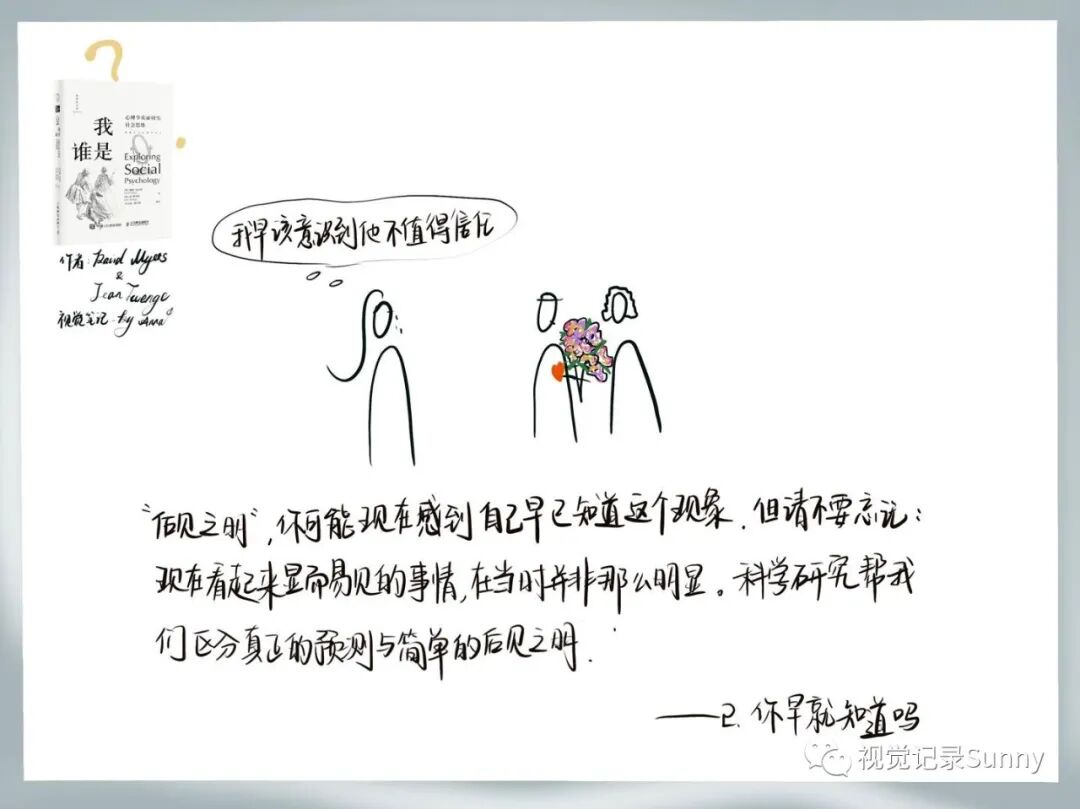 ?
我
是谁
心理学家如何看
社会思维
Exploring
Social
Psychology
作者: David Myers
&
Jean Twenge
视觉笔记 by Anna
我早该意识到他不值得信任
“后见之明”,你可能现在感到自己早已知道这个现象.但请不要忘记:
现在看起来显而易见的事情,在当时并非那么明显。科学研究帮我
们区分真正的预测与简单的后见之明.
——2.你早就知道吗
视觉记录Sunny